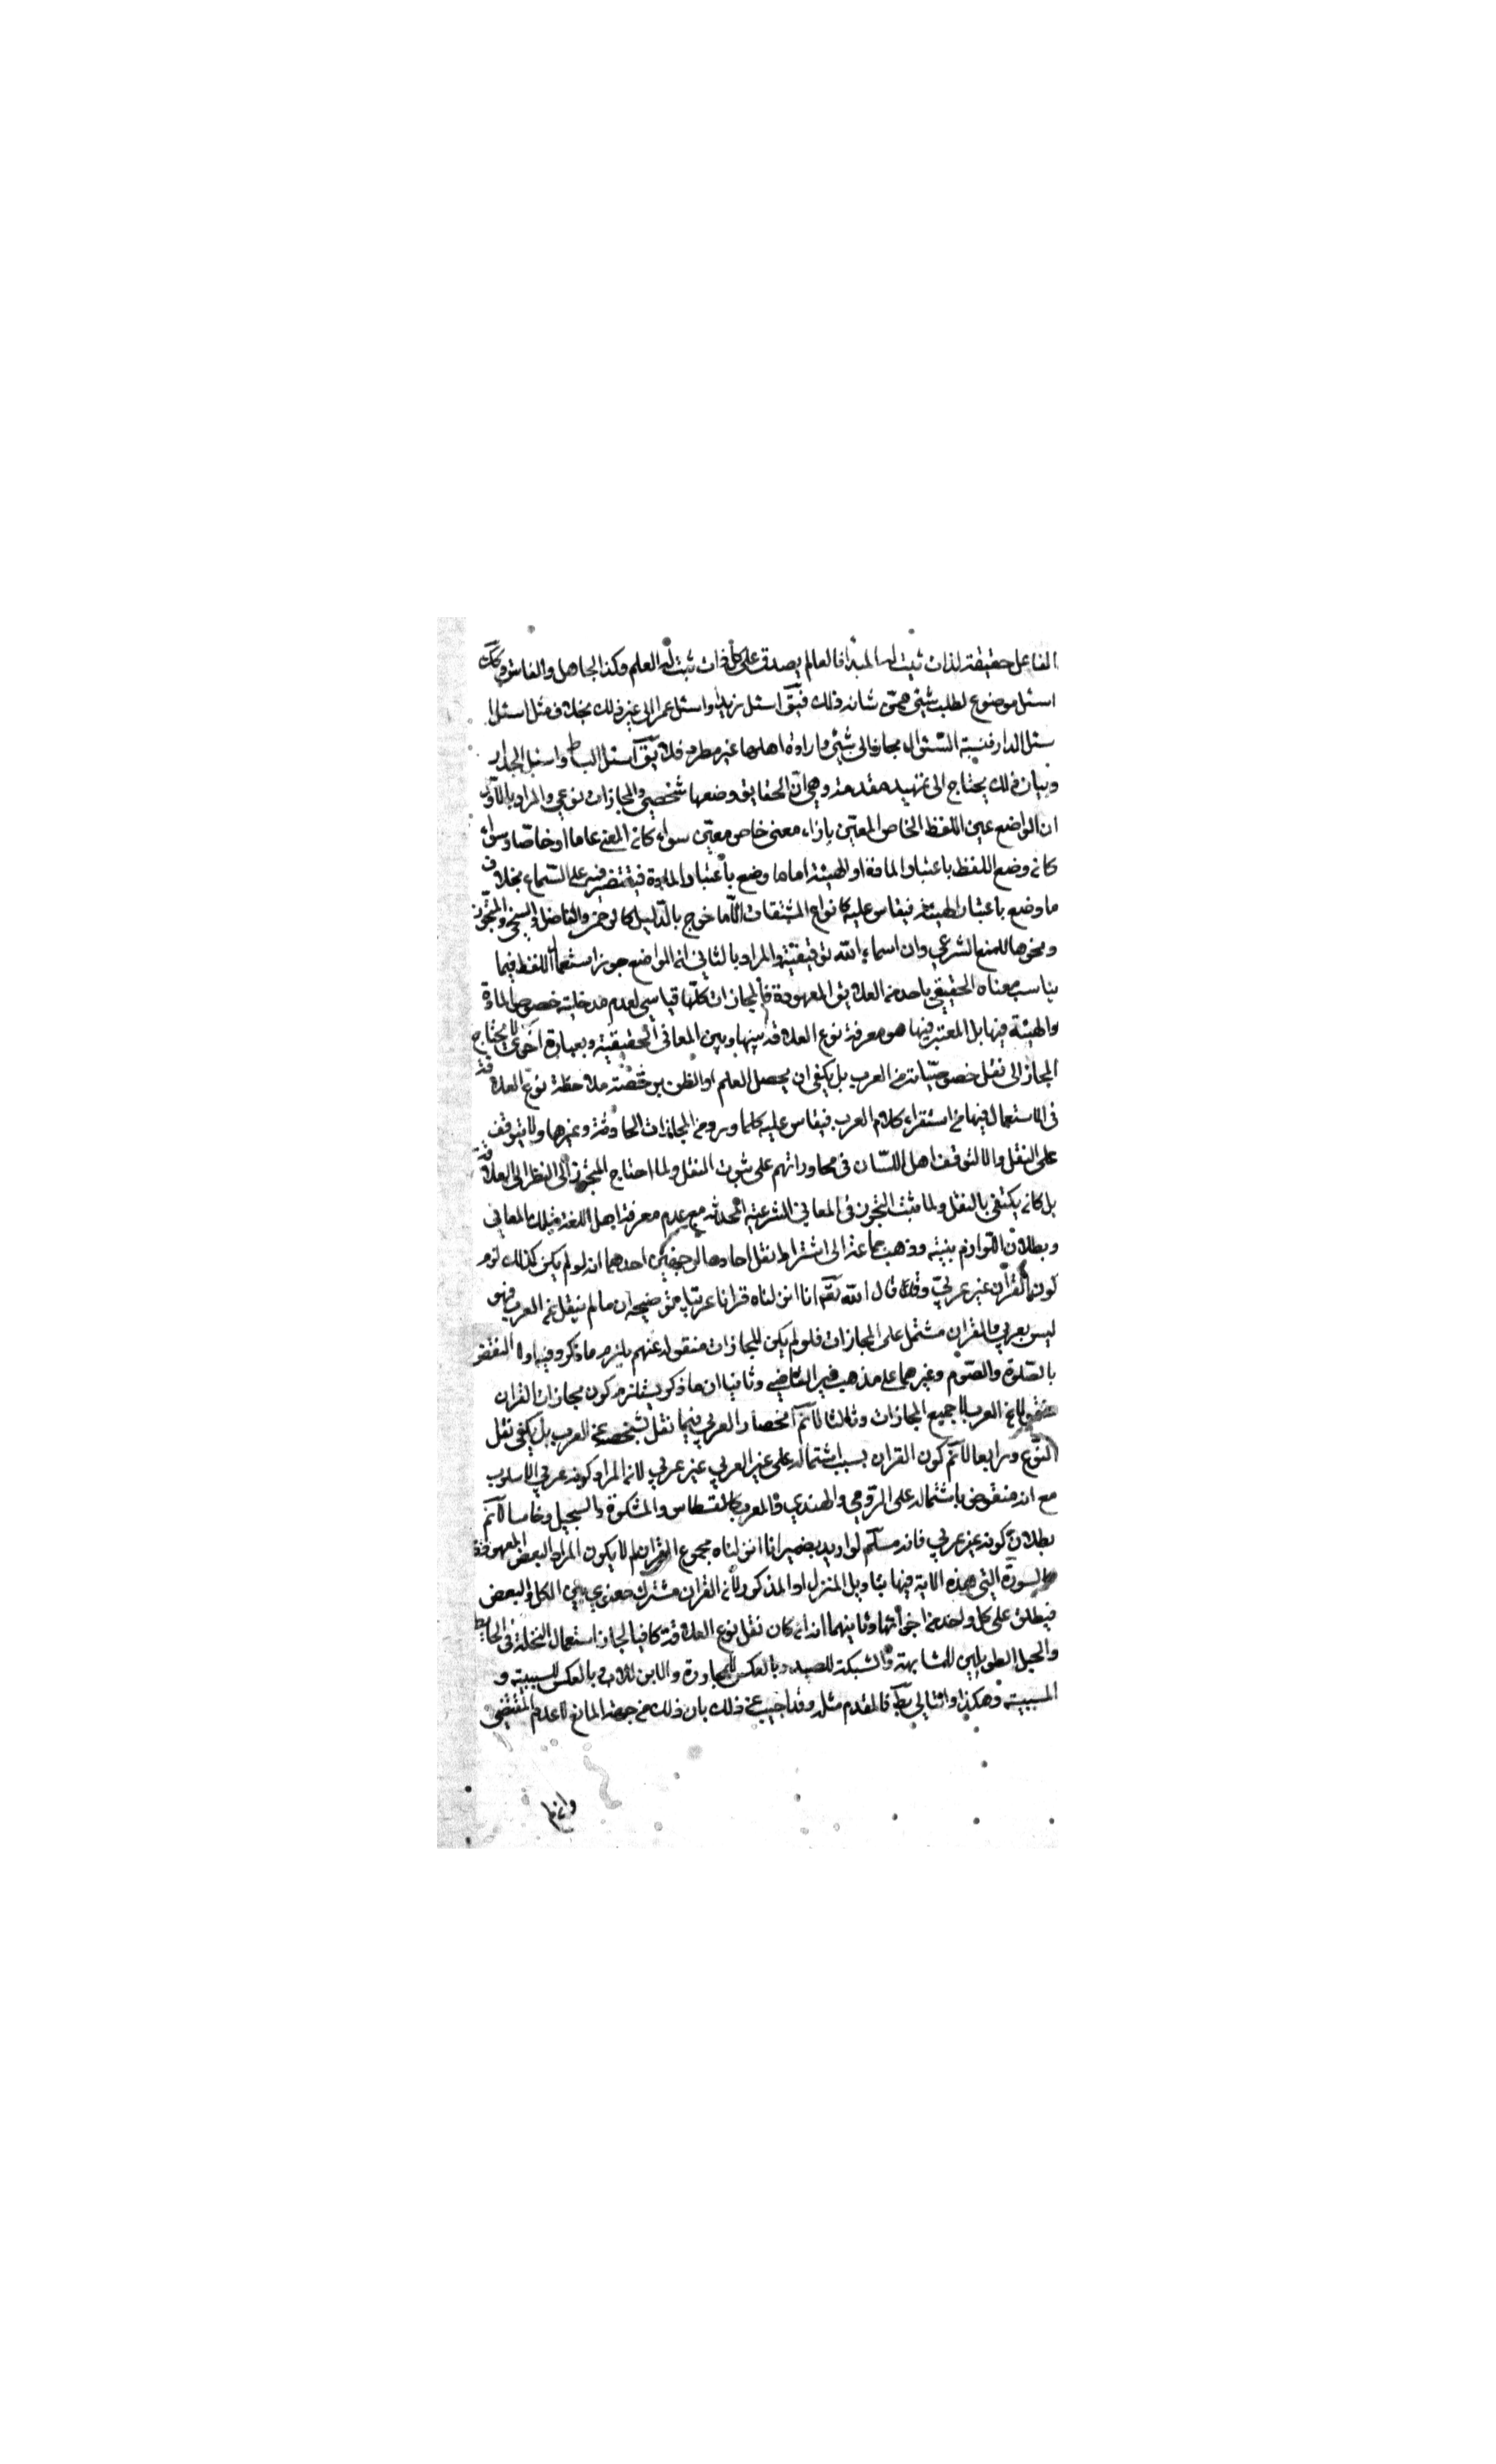 الفاعل حقيقة لذات ثبت له المبدأ فالعالم يصدق على كل ذات ثبت له العلم وكذا الجاهل والفاسق وكك
اسئل موضوع لطلب شيئ عمّن شانه ذلك فيق اسئل زيدا واسئل عمرا الى غير ذلك بخلاف مثل اسئل ا
سئل الدار فنسبة السّئوال مجازا الى شيئ وارادة اهلها غير مطرد فلا يق اسئل البساط واسئل الجدار
وبيان ذلك يحتاج الى تمهيد مقدمة وهي انّ الحقايق وضعها شخصي والمجازات نوعي والمراد بالاوّل
ان الواضع عين اللفظ الخاص المعيّن بازاء معنى خاص معيّن سواء كان المعنى عاما او خاصّا وسواء
كان وضع اللفظ باعتبار المادة او الهيئة اما ما وضع باعتبار المادة فيقتصر فيه على السّماع بخلاف
ما وضع باعتبار الهيئة فيقاس عليه كانواع المشتقات الّا ما خرج بالدّليل كالرحمن والفاضل والسخي والمتجوّز
ونحوها للمنع الشرعي وان اسماء الله توقيفيّة والمراد بالثاني ان الواضع جوز استعمال اللفظ فيما
يناسب معناه الحقيقي باحد من العلايق المعهودة فالمجازات كلّها قياسي لعدم مدخلية خصوص المادة
والهيئة فيها بل المعتبر فيها هو معرفة نوع العلاقة بينها وبين المعاني الحقيقية وبعبارة اخرى لا يحتاج
المجاز الى نقل خصوصيّاته من العرب بل يكفي ان يحصل العلم او الظن برخصة ملاحظة نوع العلاقة
في الاستعمال فيها من استقراء كلام العرب فيقاس عليه كلما ورد من المجازات الحادثة وغيرها ولا يتوقف
على النقل والا لتوقف اهل اللسّان في محاوراتهم على ثبوت النقل ولما احتاج المتجوز الى النظر الى العلاقة
بل كان يكتفي بالنقل ولما ثبت التجوز في المعاني الشرعيّة المحدثة مع عدم معرفة اهل اللغة بتلك المعاني
وبطلان اللوازم بيّنة وذهب جماعة الى اشتراط نقل احادها لوجهين احدهما انه لو لم يكن كذلك لزم
كون القران غير عربيّ وقد قال الله تعه انا انزلناه قرانا عربيّا توضيحه ان ما لم ينقل من العرب فهو
ليس بعربي والقران مشتمل على المجازات فلو لم يكن المجازات منقوله عنهم يلزم ما ذكر وفيه اولا النقض
بالصّلوة والصّوم وغيرهما على مذهب غير القاضي وثانيا ان ما ذكر يستلزم كون مجازات القران
منقولا عن العرب لا جميع المجازات وثالثا لا نم انحصار العربي فيما نقل بشخصه عن العرب بل يكفي نقل
النّوع ورابعا لا نم كون القران بسبب اشتماله على غير العربي غير عربي لان المراد كونه عربي الاسلوب
مع انه منقوض باشتماله على الرّومي والهندي والمعرب كالقسطاس والمشكوة والسجيل وخامسا لا نم
بطلان كونه غير عربي فانه مسلّم لو اريد بضمير انا انزلناه مجموع القران لم لا يكون المراد البعض المعهود
كالسورة التي هذه الاية فيها بتاويل المنزل او المذكور لان القران مشترك معنوي بين الكل والبعض
فيطلق على كل واحد من اجزائها وثانيهما انه ان كان نقل نوع العلاقة كافيا لجاز استعمال النخلة في الحايط
والجبل الطويلين للمشابهة والشبكة للصيد وبالعكس للمجاورة والابن للاب وبالعكس للسببية و
المسببيّة وهكذا والتالي بط فالمقدم مثله وقد اجيب عن ذلك بان ذلك من جهة المانع لا عدم المقتضي